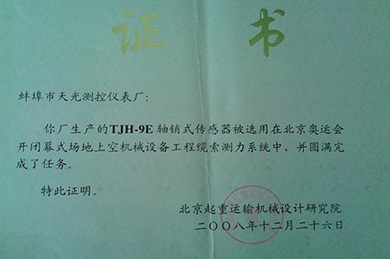 证书
蚌埠市天光测控仪表厂:
你厂生产的TJH-9E 轴销式传感器被选用在北京奥运会
开闭幕式场地上空机械设备工程缆索测力系统中，并圆满完
成了任务。
特此证明。
北京起重运输机械设计研究院
二〇〇八年十二月二十六日